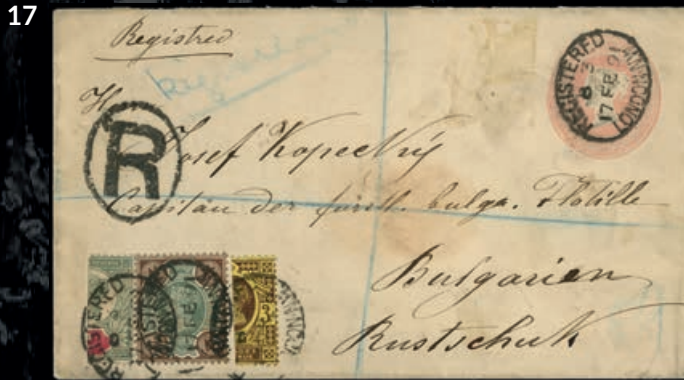 17
Registred
Registered
REGISTERED
17 FE 91
H
R
Josef Kopecký
Capitän der fürstl. bulga. Flotille
Bulgarien
Rustschuk
REGISTERED
17 FE 91
3